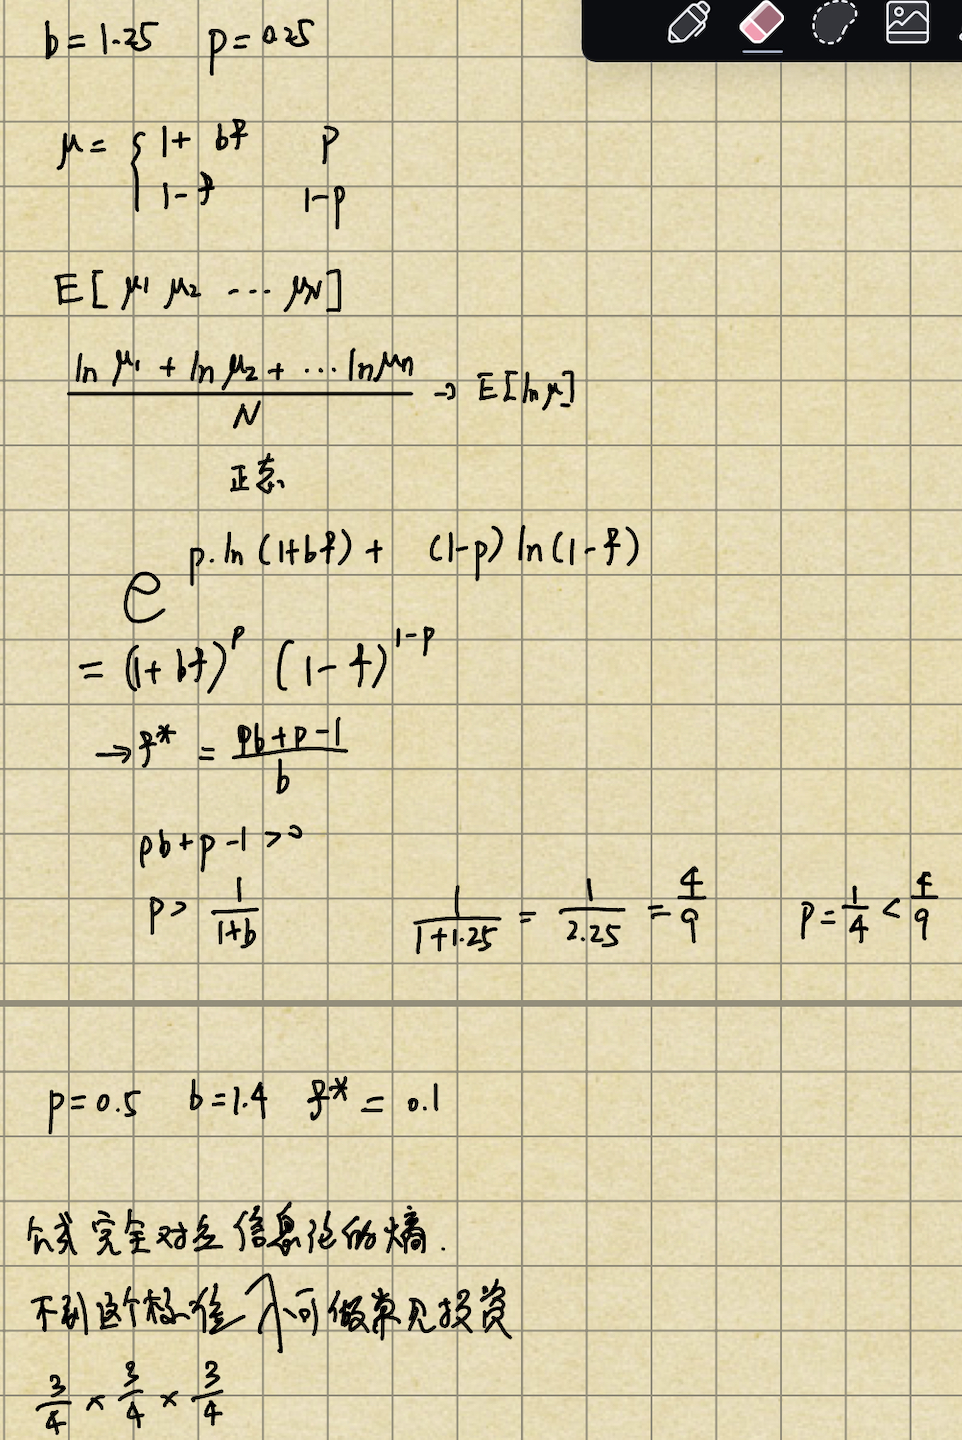 b = 1.25 p = 0.25
μ = { 1 + bf p
1 - f 1-p
E[ μ1 μ2 ... μN ]
ln μ1 + ln μ2 + ... ln μn
N
→ E[ln μ]
正态
e^{p·ln(1+bf) + (1-p) ln(1-f)}
= (1+bf)^p (1-f)^{1-p}
→ f* = (pb+p-1)/b
pb+p-1 >0
p > 1/(1+b) 1/(1+1.25) = 1/2.25 = 4/9 p = 1/4 < 4/9
p = 0.5 b = 1.4 f* = 0.1
公式完全对应信息论的熵.
不到这个极值 不可做常见投资
3/4 × 3/4 × 3/4